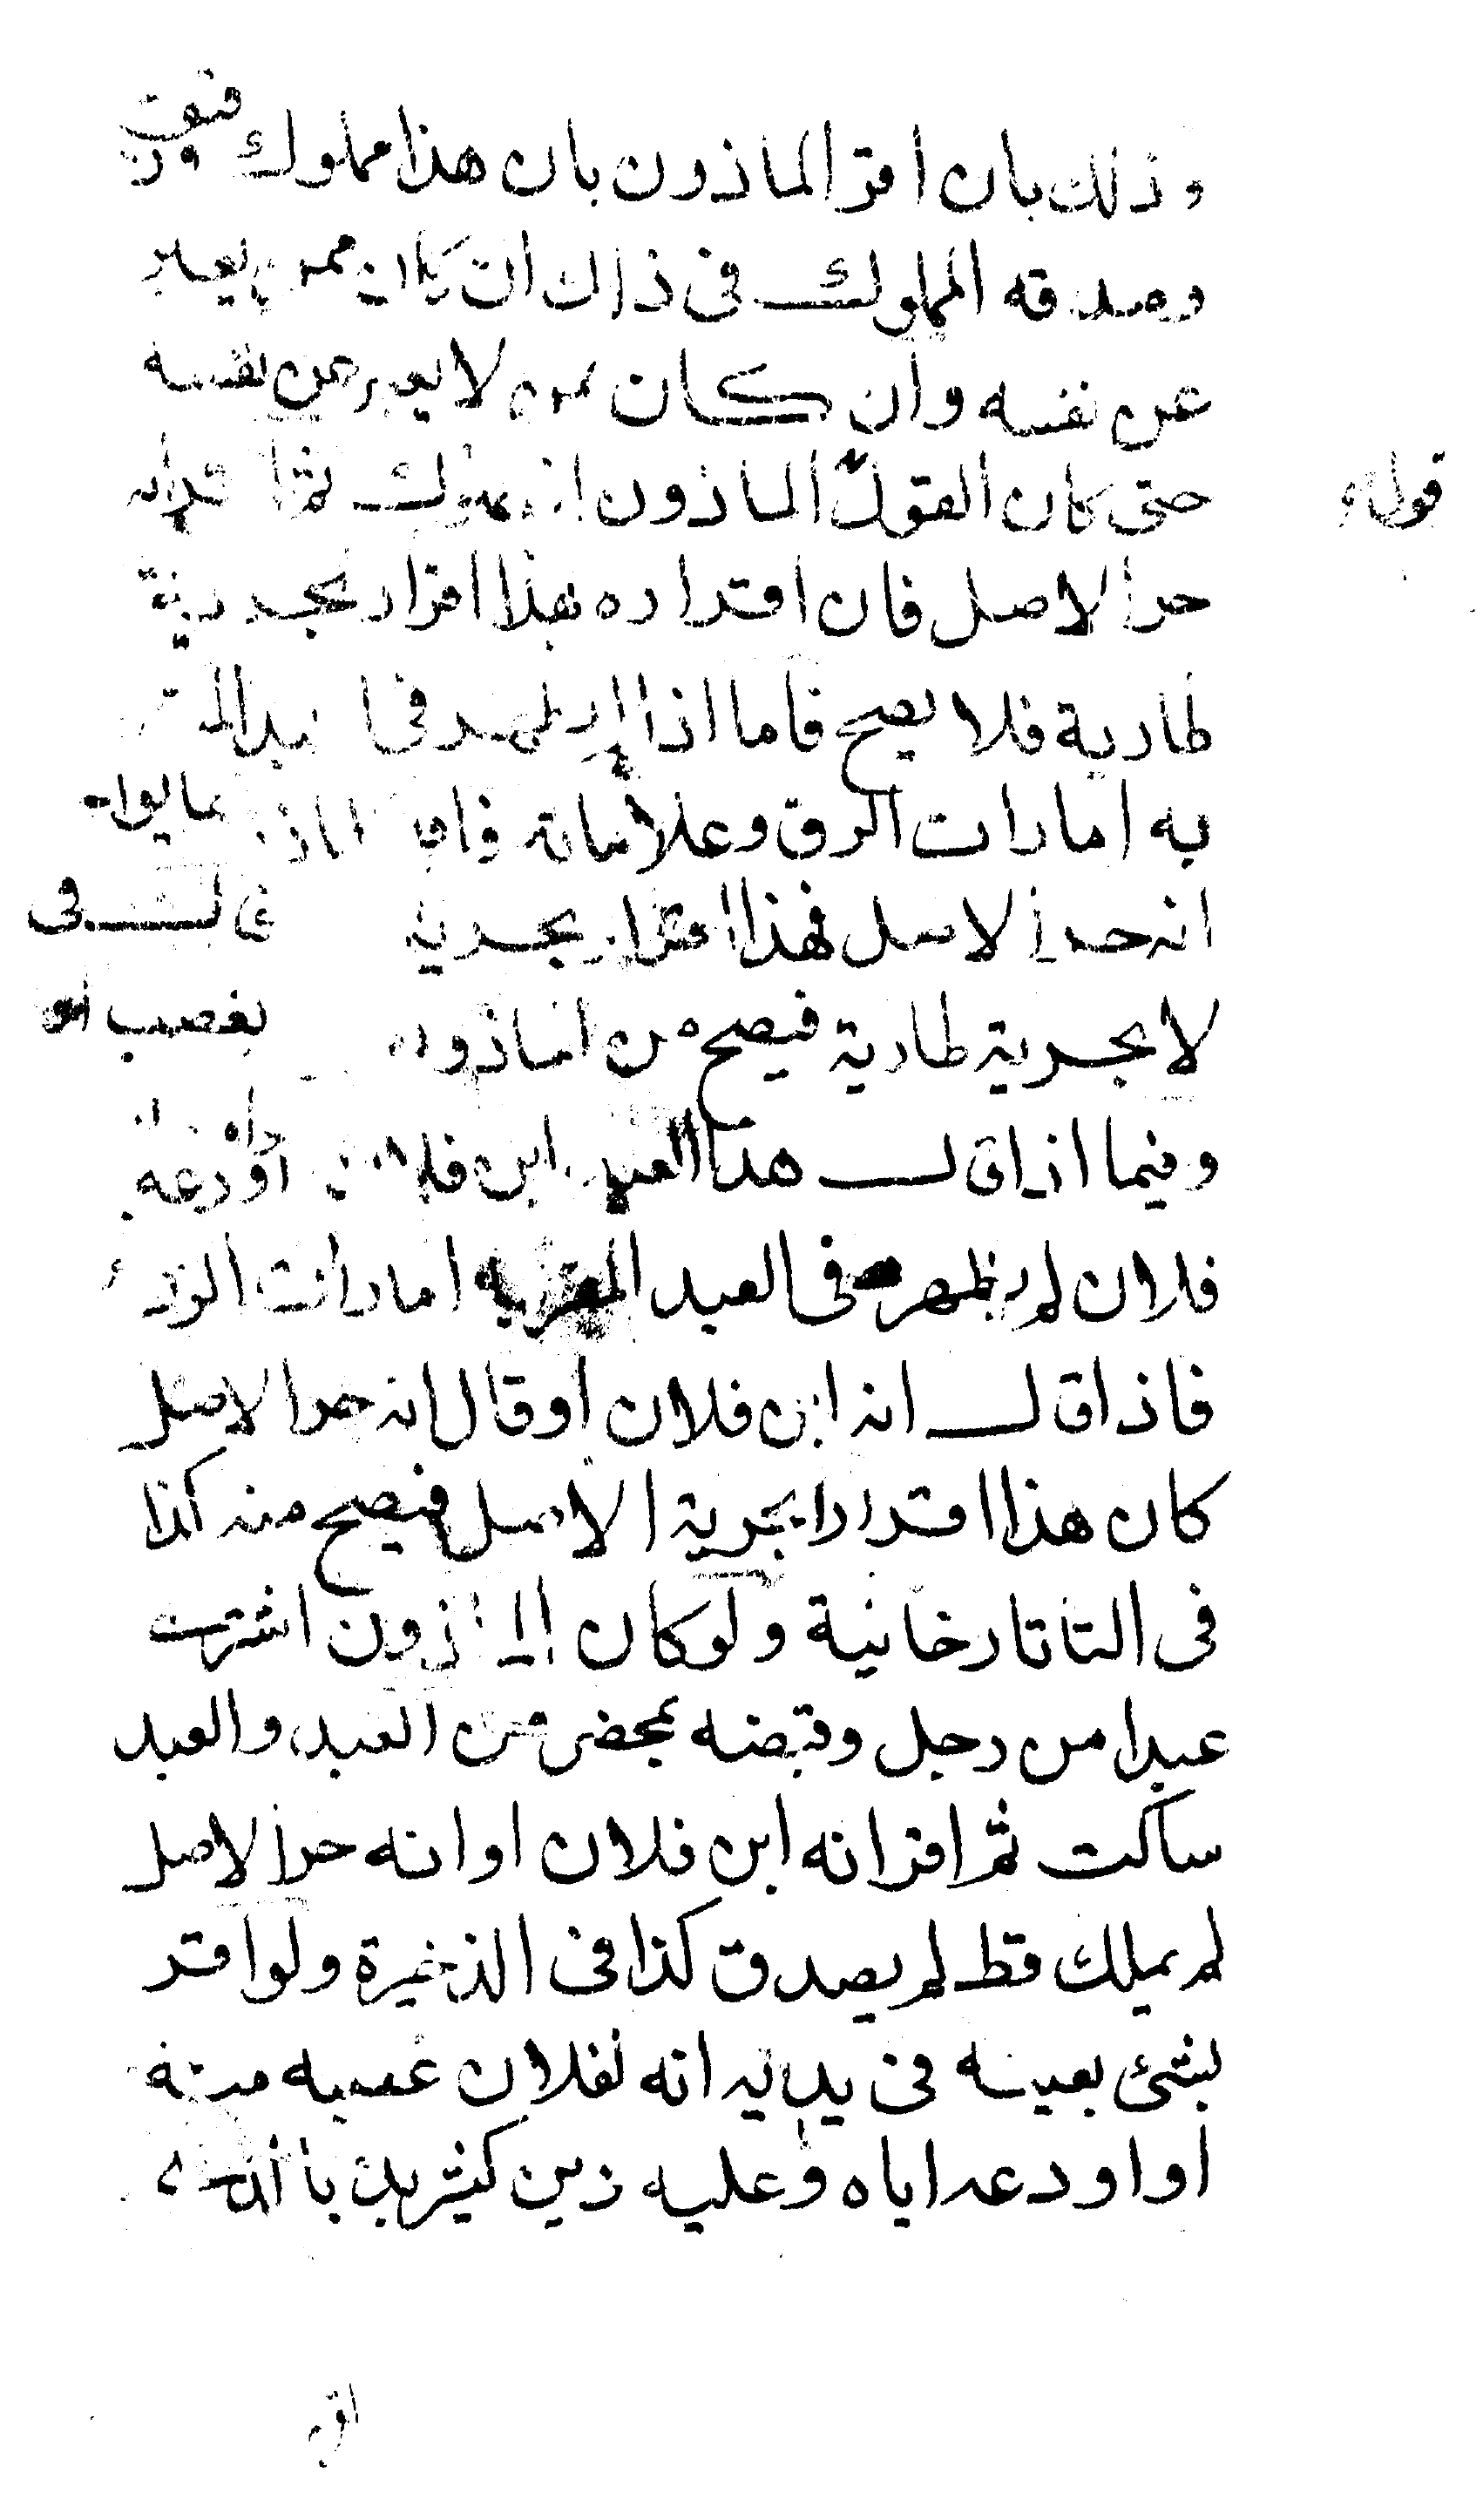 وذلك بان اقر الماذون بان هذا مملوك
وصدقه المملوك فى ذلك ان كان ممن يعبر
عن نفسه وان كان ممن لا يعبر عن نفسه
حتى كان القول الماذون انه مملوك ثم اقر انه
قوله
حر الاصل فان اقراره بهذا اقرار بحرية
طارية فلا يصح فاما اذا لم يظهر فى
به امارات الرق وعلاماته
انه حر الاصل فهذا اقرار بحرية
لا بحرية طارية فيصح من الماذون
وفيما اذا قال هذا العبد ابن فلان اودعه
فلان لم يظهر فى العبد المقر به امارات الرق
فاذا قال انه ابن فلان او قال انه حر الاصل
كان هذا اقرارا بحرية الاصل فيصح منه كذا
فى التاتارخانية ولو كان الماذون اشترى
عبدا من رجل وقبضه بمحضر من العبد والعبد
ساكت ثم اقر انه ابن فلان او انه حر الاصل
لم يملك قط لم يصدق كذا فى الذخيرة ولو اقر
بشئ بعينه فى يديه انه لفلان غصبه منه
او اودعه اياه وعليه دين كثير